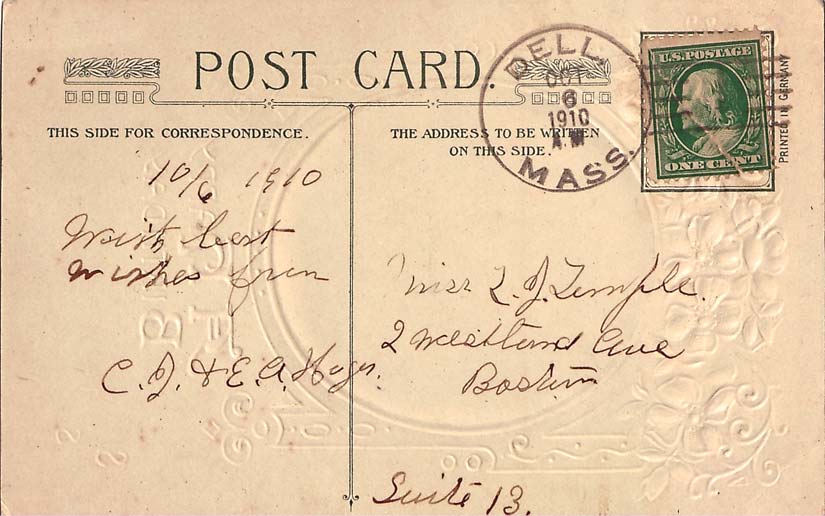 POST CARD.
THIS SIDE FOR CORRESPONDENCE.
10/6 1910
With best
wishes from
C. J. & E. A.
THE ADDRESS TO BE WRITTEN
ON THIS SIDE.
DELL,
OCT
6
1910
A.M
MASS.
U.S. POSTAGE
ONE CENT
PRINTED IN GERMANY
Miss L. J. Temple.
2 Westland Ave
Boston
Suite 13.